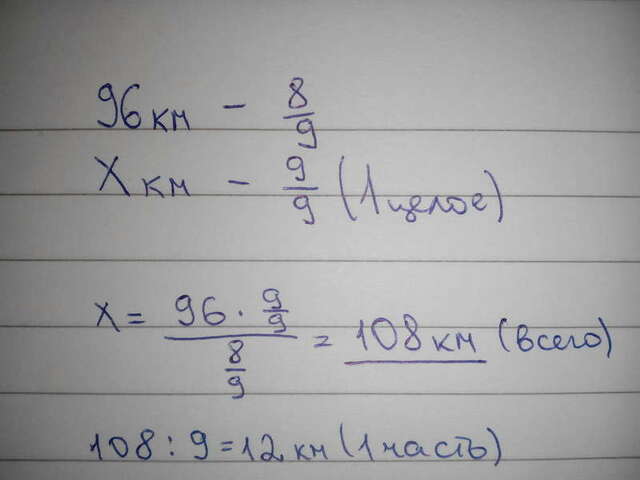 96 км - 8/9
X км - 9/9 (1 целое)
X = (96 · 9/9) / (8/9) = 108 км (всего)
108 : 9 = 12 км (1 часть)